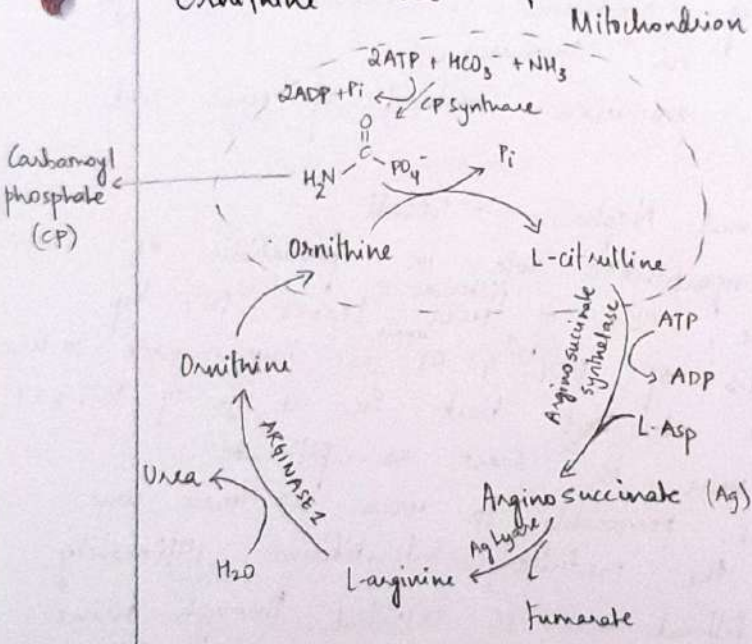 Ornithine
Mitochondrion
2ATP + HCO3⁻ + NH3
2ADP + Pi
CP synthase
O
C
H2N
PO4⁻
Pi
Carbamoyl
phosphate
(CP)
Ornithine
L-citrulline
Arginosuccinate
synthetase
ATP
ADP
L-Asp
Ornithine
ARGINASE 1
Urea
H2O
Argino succinate (Ag)
Ag lyase
L-arginine
Fumarate